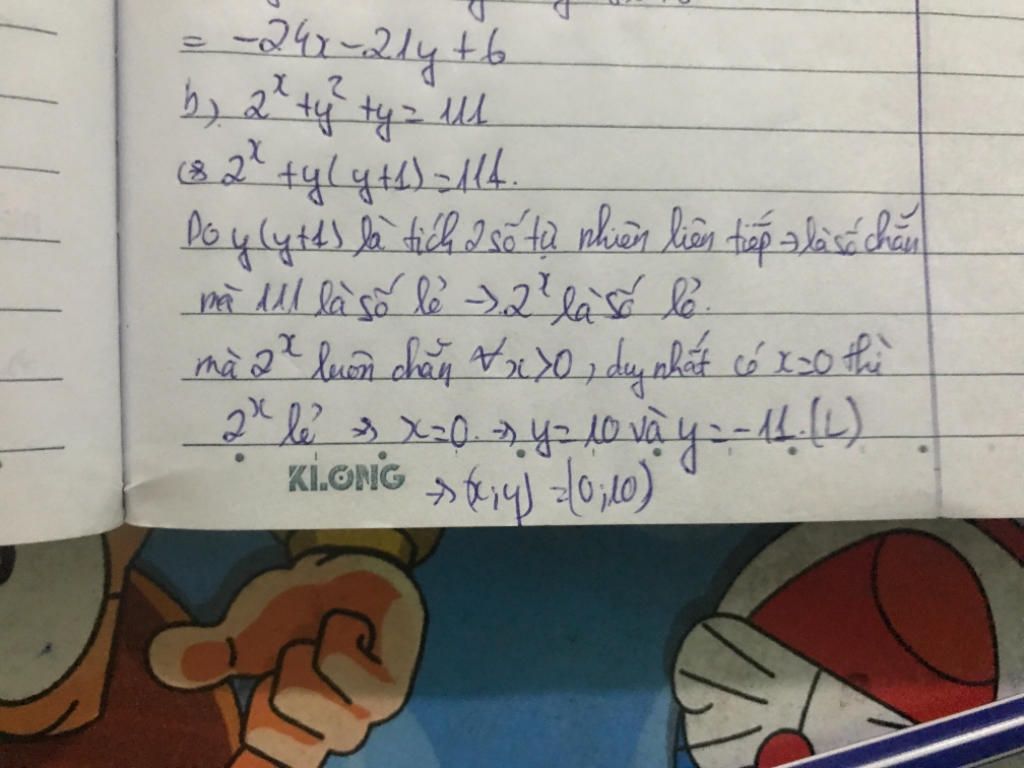 = -24x - 21y + 6
b, 2^x + y^2 + y = 111
⇔ 2^x + y(y+1) = 111.
Do y(y+1) là tích 2 số tự nhiên liên tiếp → là số chẵn
mà 111 là số lẻ → 2^x là số lẻ.
mà 2^x luôn chẵn ∀x>0, duy nhất có x=0 thì
2^x lẻ → x=0. → y=10 và y=-11. (L)
KLONG
→ (x;y) = (0;10)